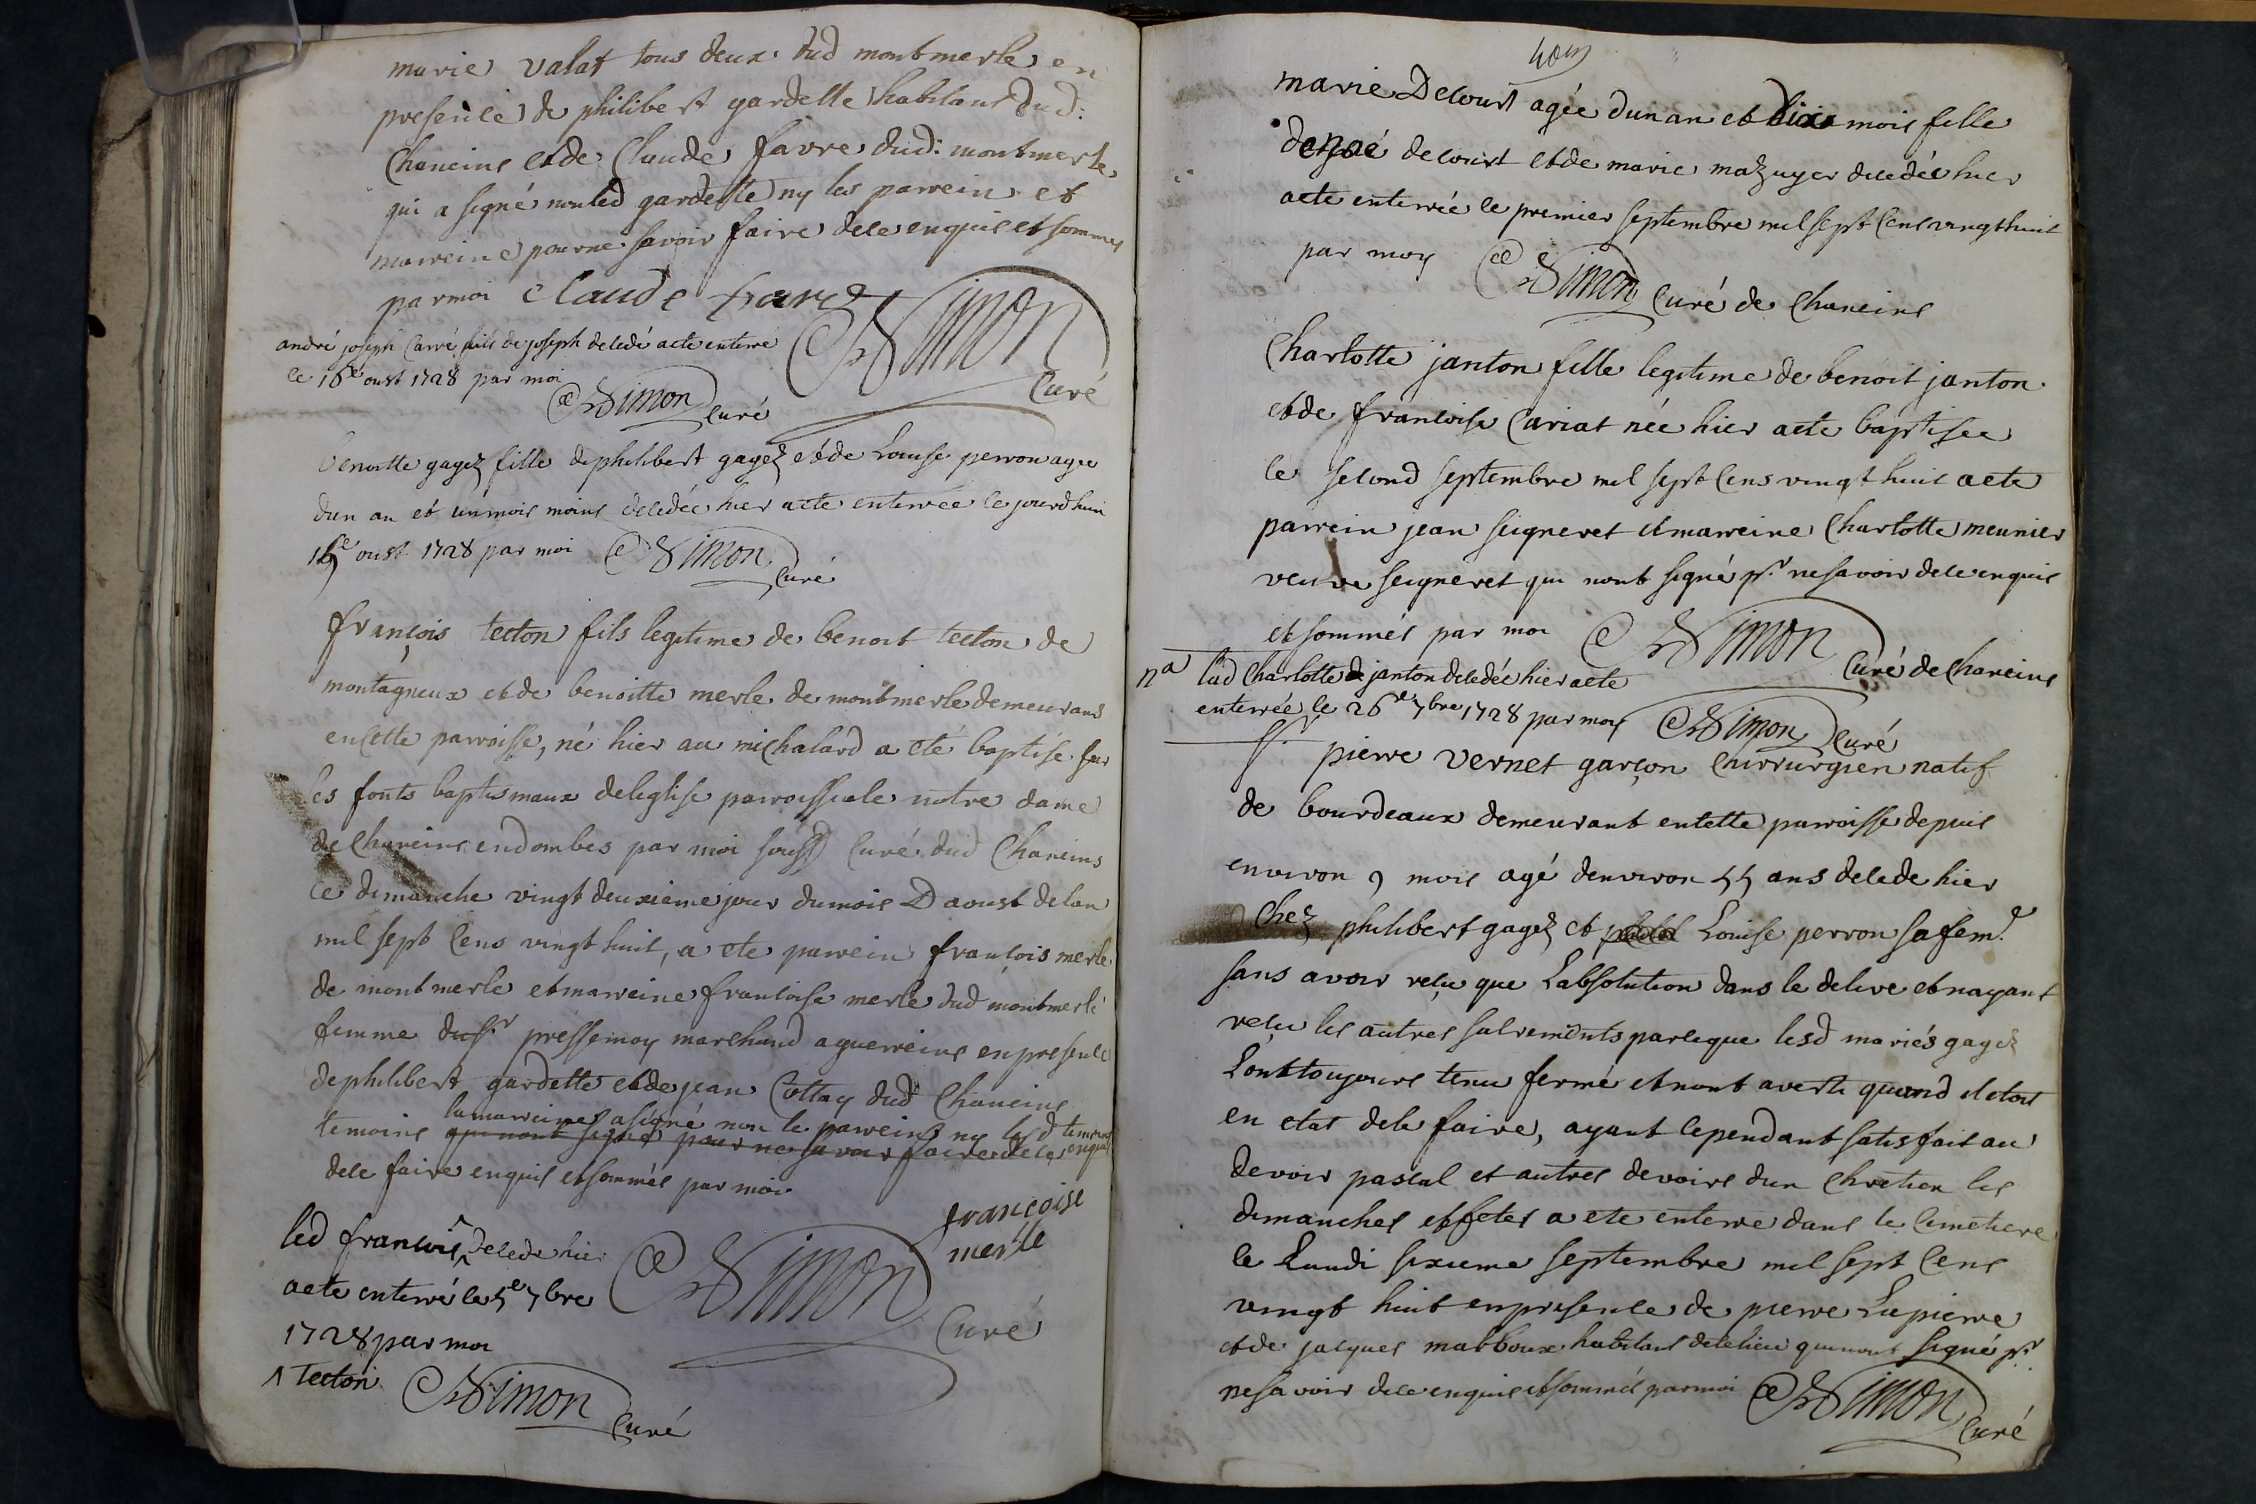 marie valat tous deux dud montmerle en
presence de philibert gardette habitans dud:
Chaneins et de Claude favre dud: montmerle
qui a signé non led gardette ny les parrein et
marreine pour ne savoir faire dece enquis et sommes
par moi Claude favre Simon
Curé
andré joseph Carré fils de joseph decedé a ete enterré
le 16e oust 1728 par moi
Simon Curé
benoitte gagez fille de philibert gagez et de Louise perron agee
dun an et un mois moins decedée hier a ete enterrée ce jourdhuin
oust 1728 par moi Simon
Curé
françois tecton fils legitime de benoit tecton de
montagneux et de benoitte merle de montmerle demeurans
en cette parroisse, né hier au michalard a eté baptisé sur
les fonts baptismaux de leglise parroissiale notre dame
de Chaneins en dombes par moi soussd Curé dud Chaneins
ce dimanche vingt deuxieme jour du mois Daoust de lan
mil sept Cens vingt huit, a ete parrein francois merle
de montmerle et marreine francoise merle dud montmerle
femme du sr pressemoy marchand a guerreins en presence
de philibert gardette et de jean Cottay dud Chaneins
la marreine a signé non le parrein ny lesd temoins
temoins qui nont signé pour ne savoir faire dece enquis
dele faire enquis et sommés par moi
françoise
merle
led francois ^ decede hier
a ete enterré le 5e 7bre
1728 par moi
^ tecton
Simon
Curé
Simon Curé
marie Decourt agée dun an et dix mois fille
de decourt et de marie mazuyer decedée hier
a ete enterrée le premier septembre mil sept Cens vingt huit
par moy Simon Curé de Chaneins
Charlotte janton fille legitime de benoit janton
et de francoise Cariat née hier a ete baptisee
le second septembre mil sept Cens vingt huit a ete
parrein jean seigneret et marreine Charlotte meunier
veuve seigneret qui nont signé pr ne savoir dece enquis
et sommés par moi Simon
Curé de Chaneins
na lad Charlotte janton decedée hier a ete
enterrée le 26e 7bre 1728 par moy Simon Curé
sr pierre vernet garçon Chirurgien natif
de bourdeaux demeurant en cette parroisse depuis
environ 9 mois agé denviron 55 ans decede hier
Chez philibert gagez et Louise perron sa feme
sans avoir reçu que Labsolution dans le delire et nayant
reçu les autres sacrements parceque lesd mariés gagez
Lont toujours tenu fermé et nont averti quand il etoit
en etat dele faire, ayant cependant satisfait au
devoir pascal et autres devoirs dun Chretien les
dimanches et fetes a ete enterré dans le Cimetiere
le Lundi sixieme septembre mil sept Cens
vingt huit en presence de pierre Lapierre
et de jacques matboux habitans de ce lieu qui nont signé pr
ne savoir dece enquis et sommés par moi Simon
Curé